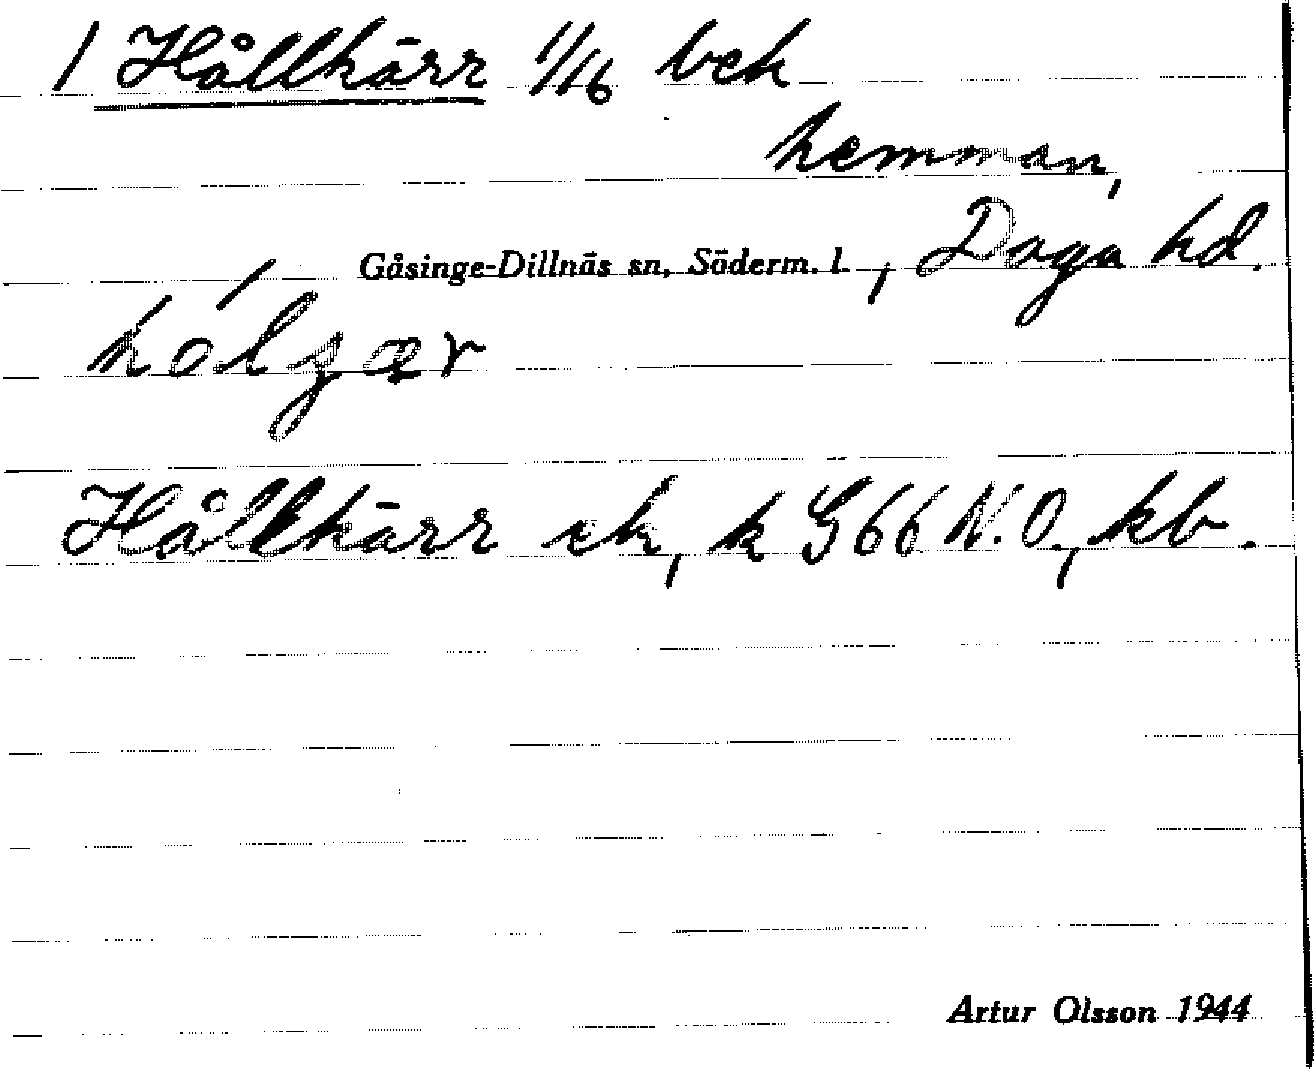 1 Hållkärr 11/16 bek
hemman,
Gåsinge-Dillnäs sn, Söderm. l., Daga hd.
hólgær
Hållkärr ek, k G66 N.O., kb.
Artur Olsson 1944